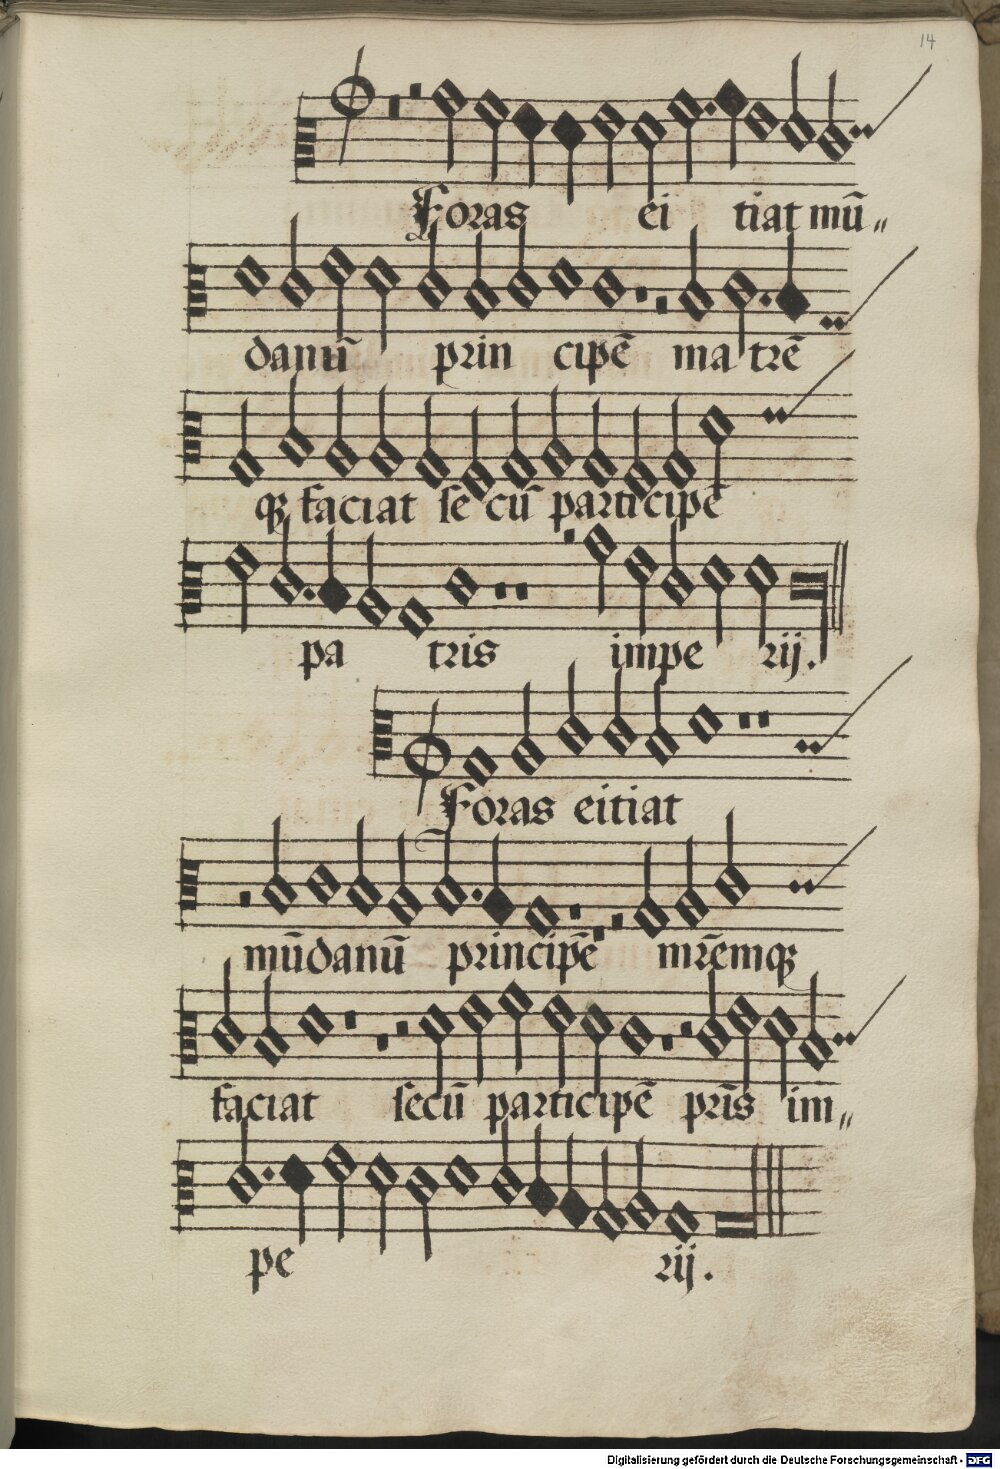 14
Foras ei tiat mū„
danū prin cipē ma trē
qꝫ faciat se cū participē
pa tris impe rij.
Foras eitiat
mūdanū principē mr̄emqꝫ
faciat secū participē pr̄is im„
pe rij.
Digitalisierung gefördert durch die Deutsche Forschungsgemeinschaft - DFG